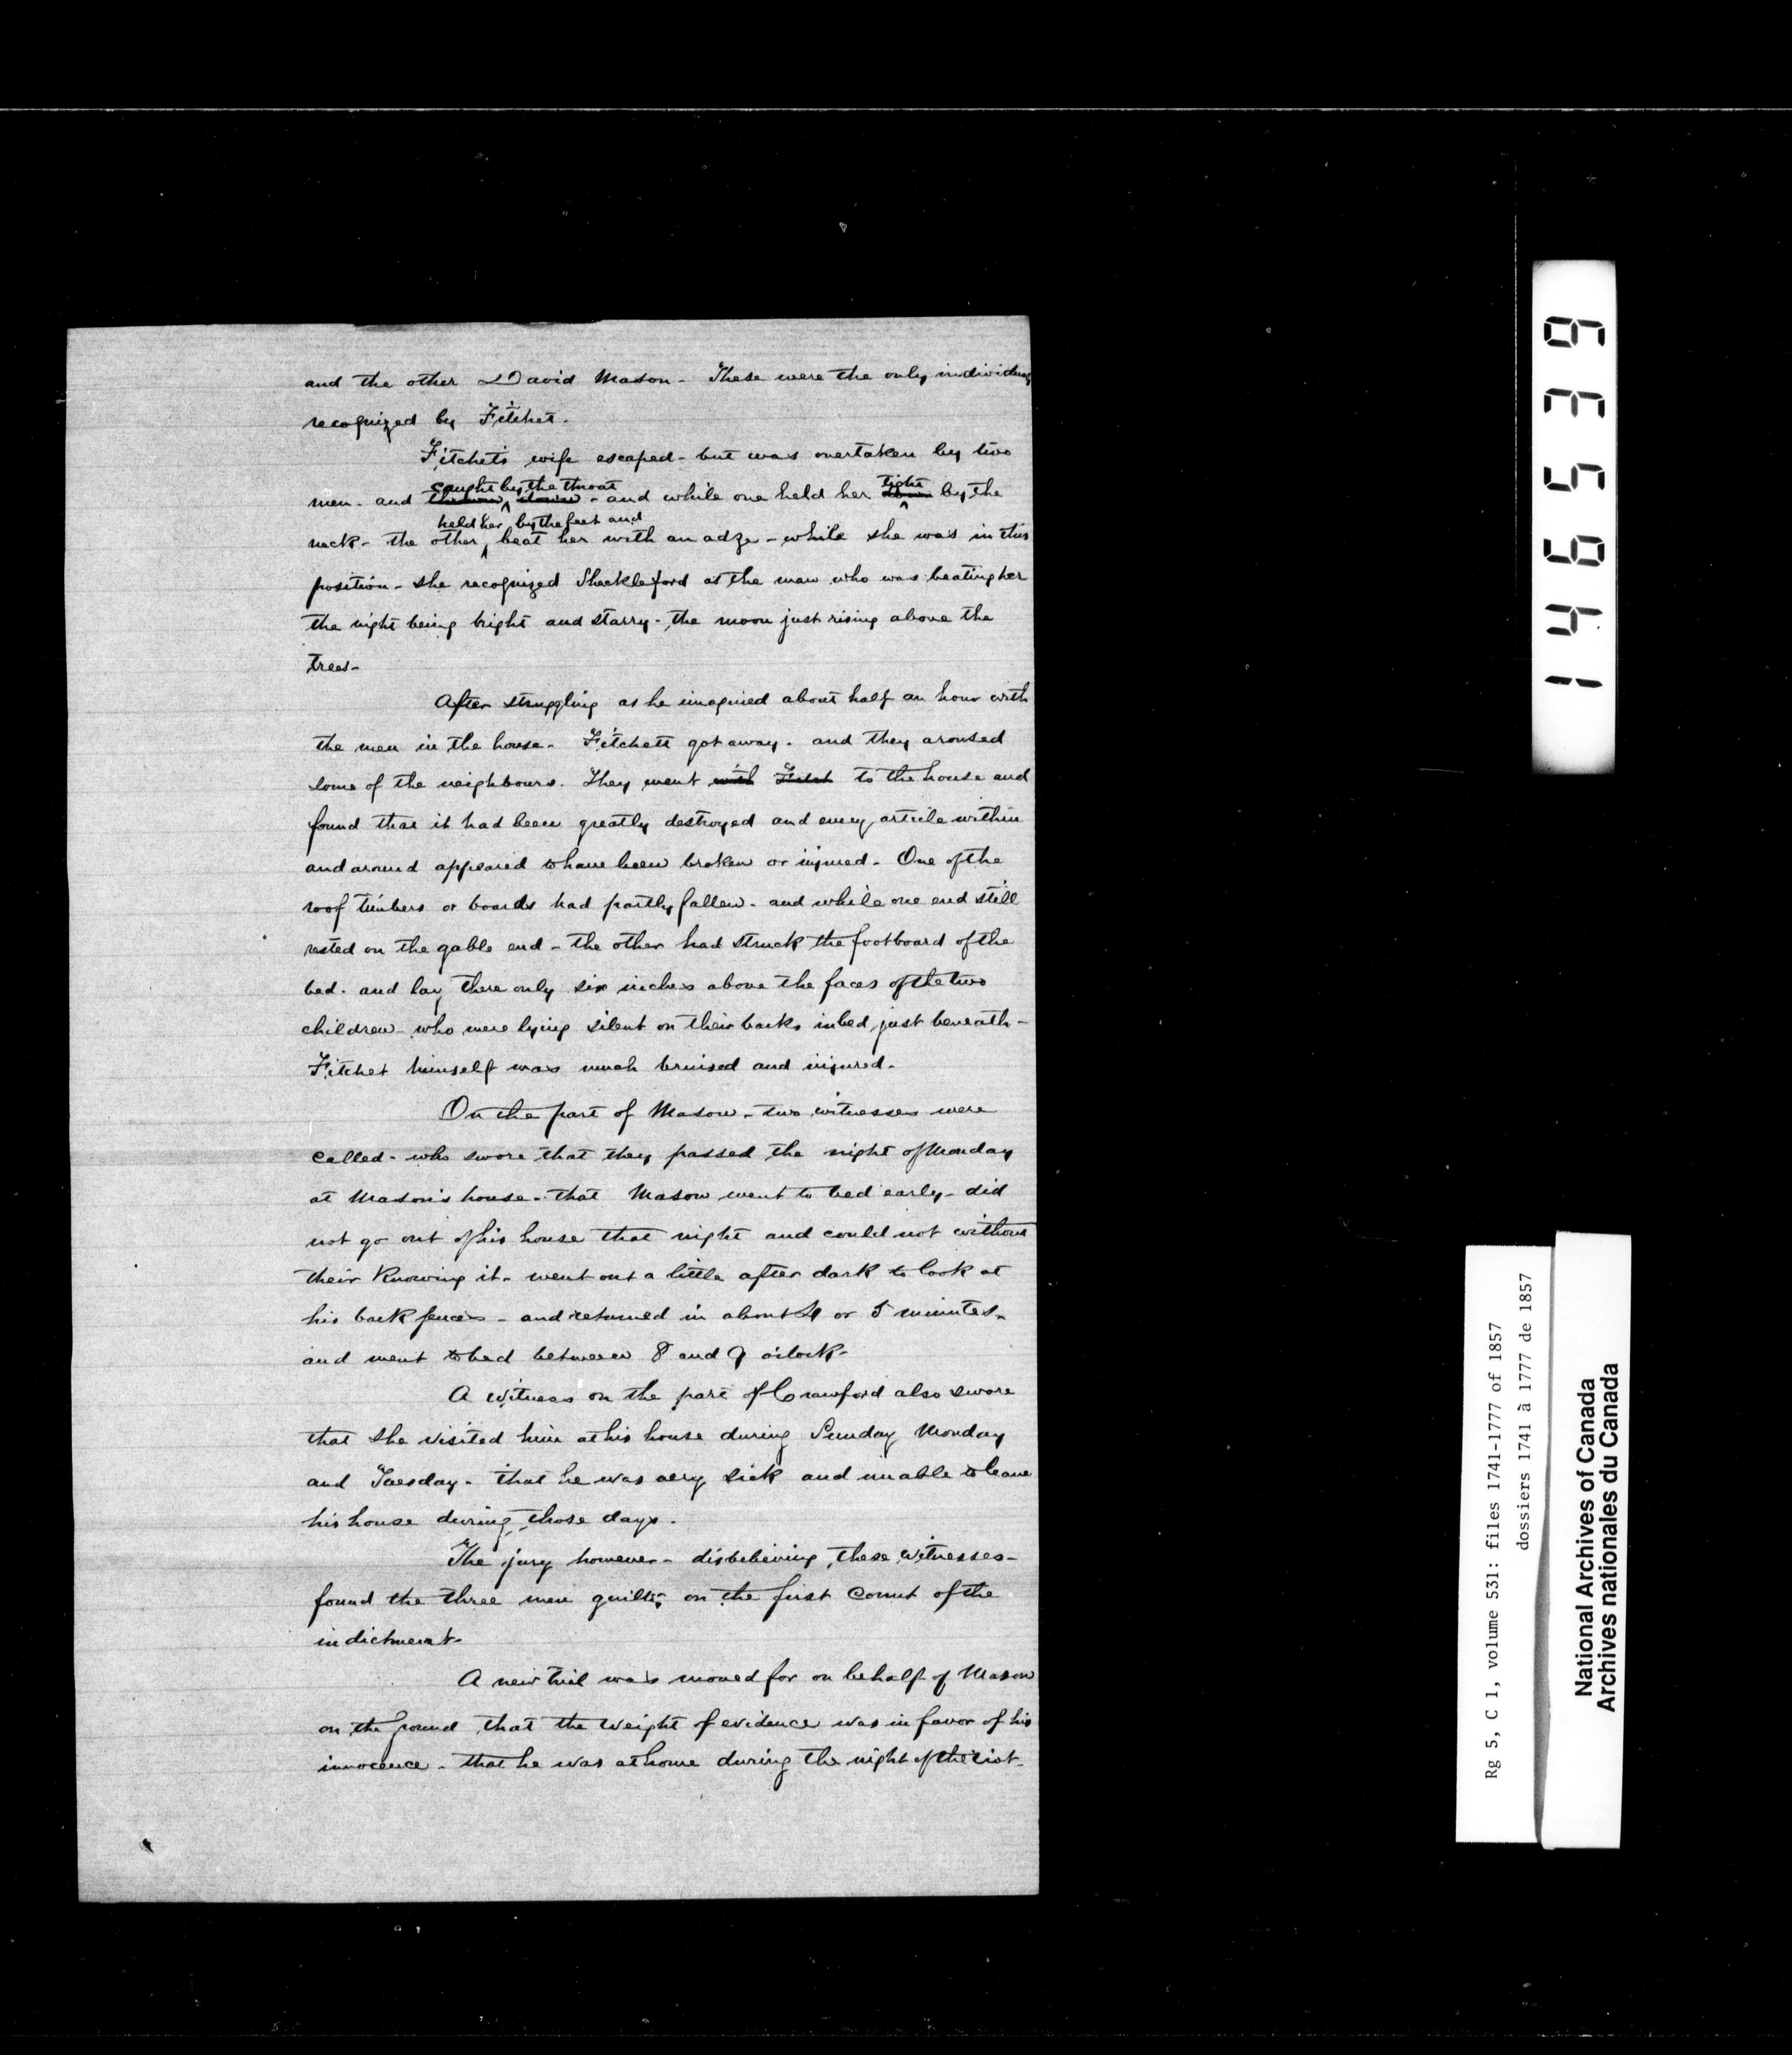 and the other David Mason - These were the only individuals
recognized by Fitchet.
Fitchet's wife escaped - but was overtaken by two
caught by the throat tight
men - and thrown down - and while one held her down by the
held her by the feet and
neck - the other beat her with an adze - while she was in this
position - she recognized Shackleford as the man who was beating her
the night being bright and starry - the moon just rising above the
trees -
After struggling as he imagined about half an hour with
the men in the house - Fitchett got away - and they aroused
some of the neighbours. They went with Fitchet to the house and
found that it had been greatly destroyed and every article within
and around appeared to have been broken or injured - One of the
roof timbers or boards had partly fallen - and while one end still
rested on the gable end - the other had struck the footboard of the
bed - and lay there only six inches above the faces of the two
children - who were lying silent on their backs in bed just beneath -
Fitchet himself was much bruised and injured -
On the part of Mason - two witnesses were
called - who swore that they passed the night of Monday
at Mason's house - that Mason went to bed early - did
not go out of his house that night and could not without
their knowing it - went out a little after dark to look at
his back fences - and returned in about 4 or 5 minutes -
and went to bed between 8 and 9 o'clock -
A witness on the part of Crawford also swore
that she visited him at his house during Sunday Monday
and Tuesday - that he was very sick and unable to leave
his house during those days.
The jury however - disbelieving these witnesses -
found the three men guilty on the first count of the
indictment -
A new trial was moved for on behalf of Mason
on the ground that the weight of evidence was in favor of his
innocence - that he was at home during the night of the riot -
146539
Rg 5, C 1, volume 531: files 1741-1777 of 1857
dossiers 1741 à 1777 de 1857
National Archives of Canada
Archives nationales du Canada